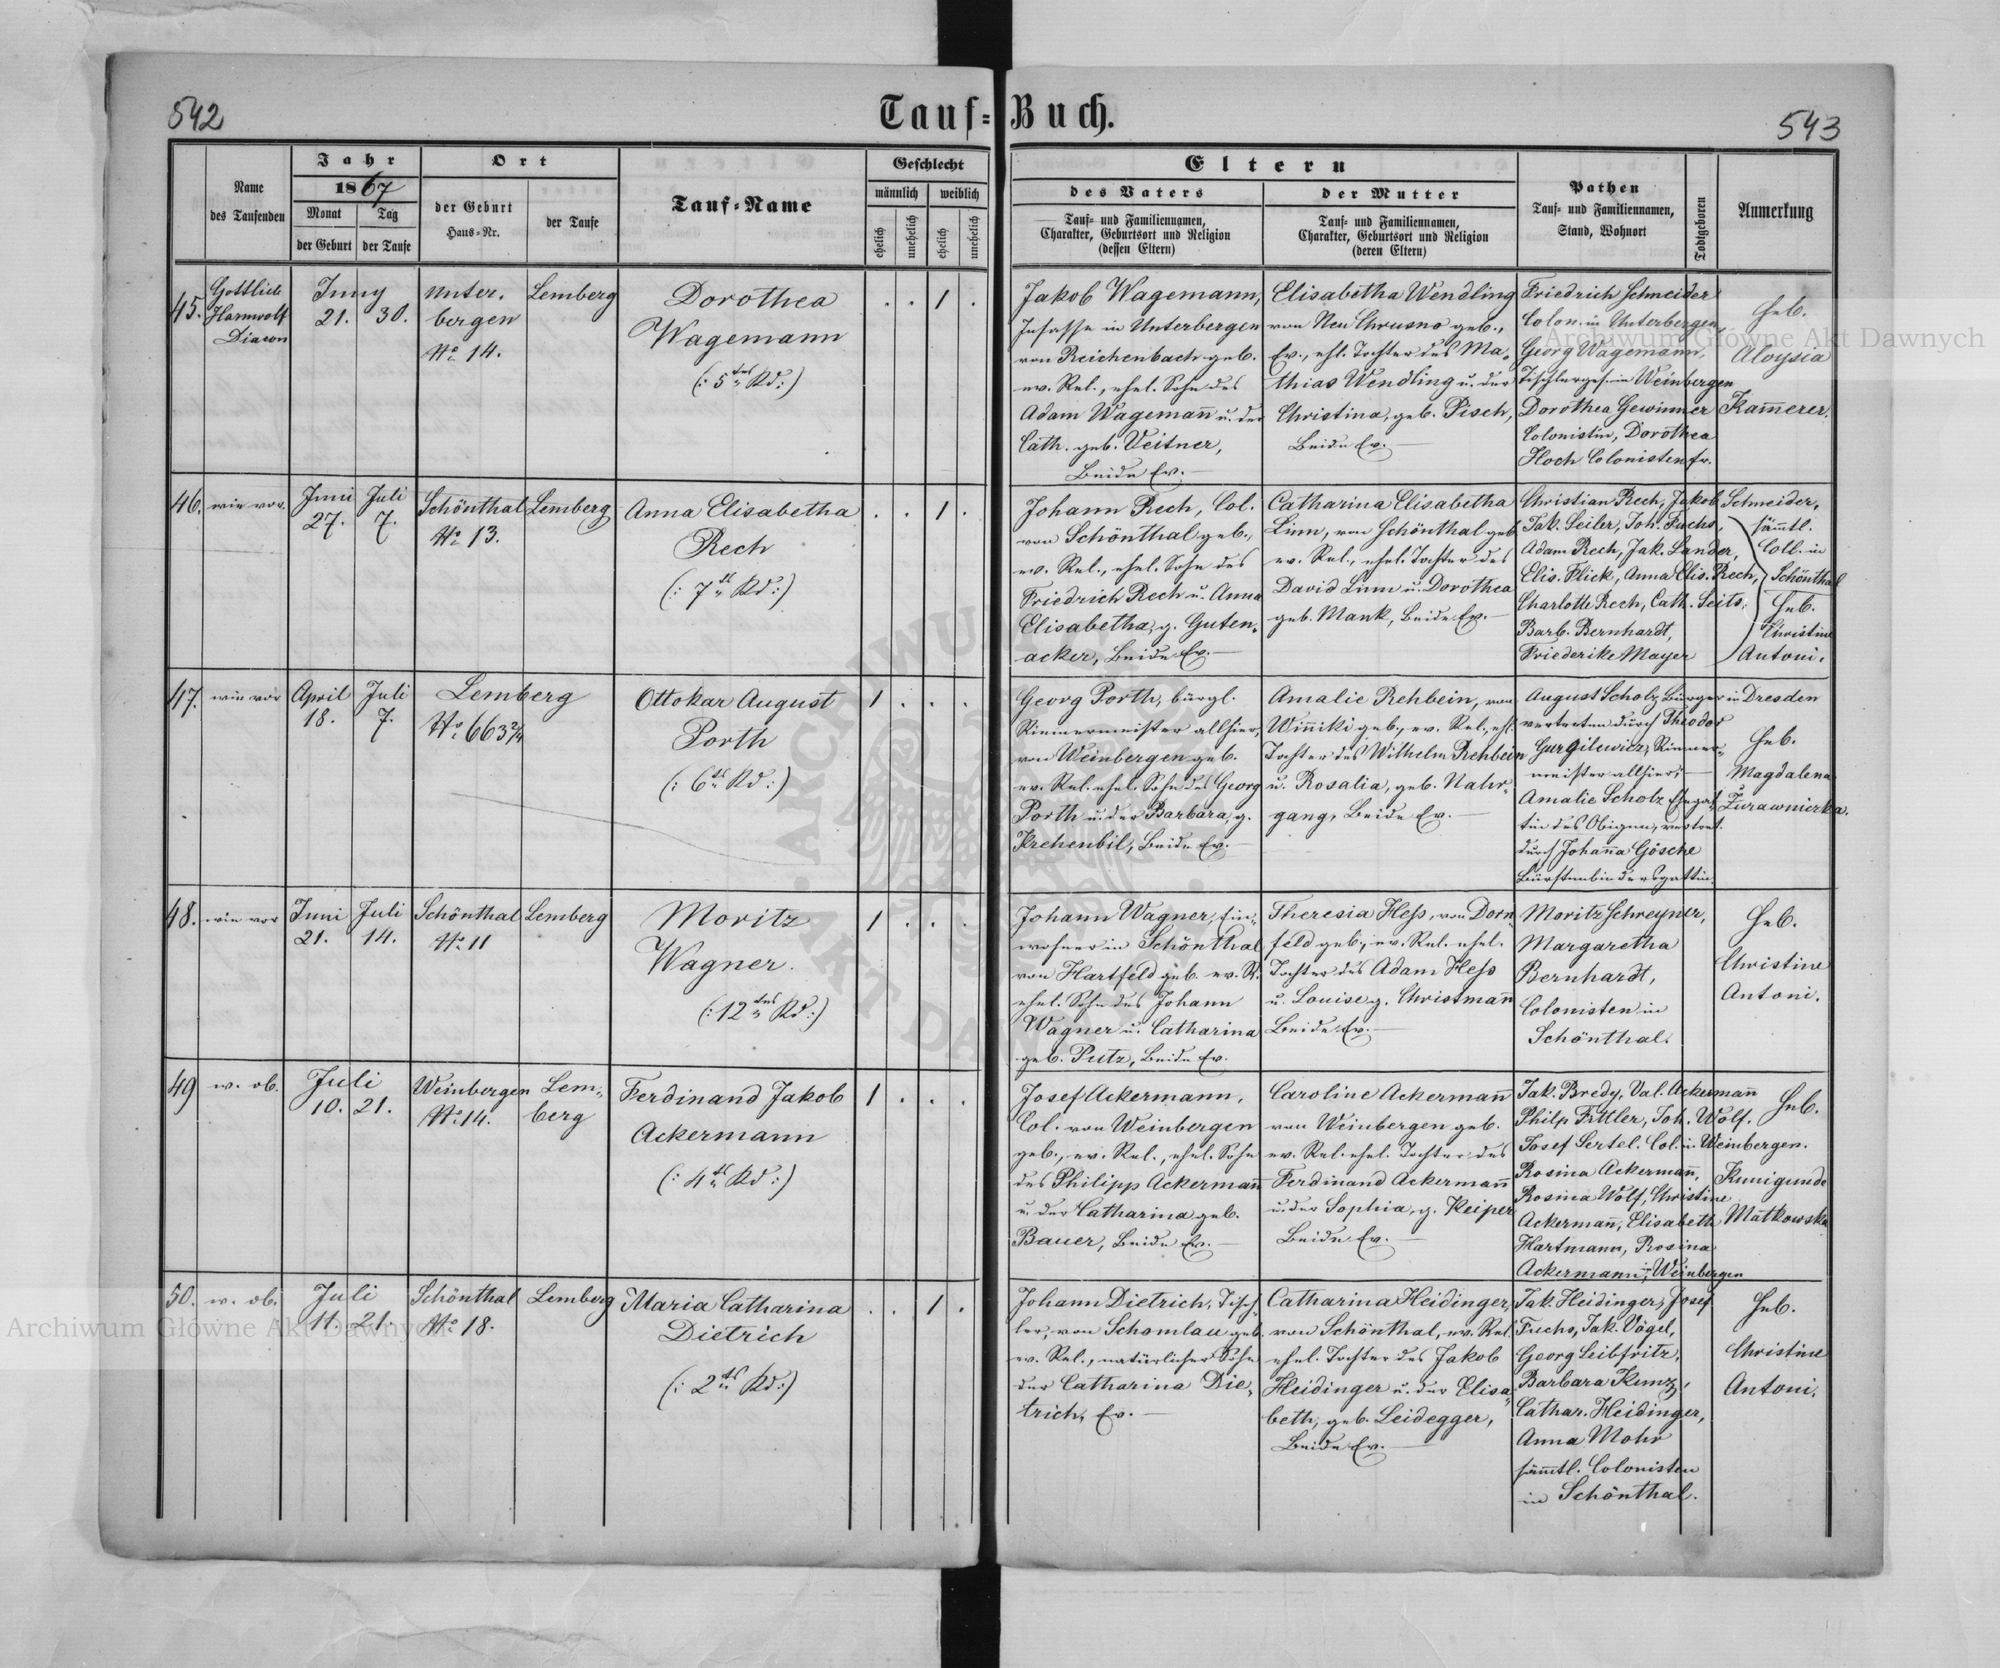 542
Tauf-Buch.
543
Name
des Taufenden
Jahr
1867
Monat
Tag
der Geburt
der Taufe
Ort
der Geburt
Haus-Nr.
der Taufe
Tauf-Name
Geschlecht
männlich
weiblich
ehelich
unehelich
ehelich
unehelich
Eltern
des Vaters
Tauf- und Familiennamen,
Charakter, Geburtsort und Religion
(dessen Eltern)
der Mutter
Tauf- und Familiennamen,
Charakter, Geburtsort und Religion
(deren Eltern)
Pathen
Tauf- und Familiennamen,
Stand, Wohnort
Todtgeboren
Anmerkung
45.
Gottlieb
Harnwolf
Diacon
Juny
21. 30.
Unter-
bergen
No. 14.
Lemberg
Dorothea
Wagemann
(: 5tes Kd :)
. . 1 .
Jakob Wagemann,
Insasse in Unterbergen
von Reichenbach geb.
ev. Rel., ehel. Sohn des
Adam Wagemann̄ u. der
Cath. geb. Veitner,
Beide Ev.
Elisabetha Wendling
von Neu Chrusno geb.,
Ev., ehl. Tochter des Ma-
thias Wendling u. der
Christina, geb. Pisch,
Beide Ev.
Friedrich Schneider
Colon. in Unterbergen,
Georg Wagemann,
Tischlerges. in Weinbergen
Dorothea Gewinner
Colonistin, Dorothea
Hoch Colonistenfr.
Heb.
Aloysia
Kam̄erer.
46.
wie vor.
Juni
27.
Juli
7.
Schönthal
No. 13.
Lemberg
Anna Elisabetha
Rech
(: 7ts Kd :)
. . 1 .
Johann Rech, Col.
von Schönthal geb.,
ev. Rel., ehel. Sohn des
Friedrich Rech u. Anna
Elisabetha, g. Guten-
acker, Beide Ev.
Catharina Elisabetha
Linn, von Schönthal geb
ev. Rel., ehel. Tochter des
David Linn u. Dorothea
geb. Mank, Beide Ev.
Christian Rech, Jakob Schneider,
Jak. Seiler, Joh. Fuchs,
Adam Rech, Jak. Lander,
Elis. Flick, Anna Elis. Rech,
Charlotte Rech, Cath. Seits,
Barb. Bernhardt,
Friederike Mayer
säm̄tl.
Coll. in
Schönthal
Heb.
Christine
Antoni.
47.
wie vor
April
18.
Juli
7.
Lemberg
No. 663 2/4
Ottokar August
Porth
(: 6ts Kd :)
1 . . .
Georg Porth, bürgl.
Riemermeister allhier,
von Weinbergen geb.
ev. Rel. ehel. Sohn des Georg
Porth u. der Barbara, g.
Krehenbil, Beide Ev.
Amalie Rehbein, von
Win̄iki geb., ev. Rel., ehl.
Tochter des Wilhelm Rehbein
u. Rosalia, geb. Nahr-
gang, Beide Ev.
August Scholz Bürger in Dresden
vertreten durch Theodor
Gurgilewicz, Riemer-
meister allhier,
Amalie Scholz Ehegat-
tin des Obigen, vertret.
durch Johan̄a Gösche
Bürstenbindersgattin.
Heb.
Magdalena
Żurawnierka.
48.
wie vor
Juni
21.
Juli
14.
Schönthal
No. 11
Lemberg
Moritz
Wagner.
(: 12tes Kd :)
1 . . .
Johann Wagner, Ein-
wohner in Schönthal
von Hartfeld geb. ev. R.
ehel. Sohn des Johann
Wagner u. Catharina
geb. Putz, Beide Ev.
Theresia Heß, von Dorn-
feld geb., ev. Rel. ehel.
Tochter des Adam Heß
u. Louise g. Christman̄
Beide Ev.
Moritz Schreyner,
Margaretha
Bernhardt,
Colonisten in
Schönthal.
Heb.
Christine
Antoni.
49
w. ob.
Juli
10. 21.
Weinbergen
No. 14.
Lem-
berg
Ferdinand Jakob
Ackermann
(: 4ts Kd :)
1 . . .
Josef Ackermann,
Col. von Weinbergen
geb., ev. Rel., ehel. Sohn
des Philipp Ackerman̄
u. der Catharina geb.
Bauer, Beide Ev.
Caroline Ackerman̄
von Weinbergen geb.
ev. Rel. ehel. Tochter des
Ferdinand Ackerman̄
u. der Sophia, g. Keiper
Beide Ev.
Jak. Bredy, Val. Ackerman̄
Philp Fittler, Joh. Wolf.
Josef Sertel. Col. in Weinbergen.
Rosina Ackerman̄,
Rosina Wolf, Christine
Ackerman̄, Elisabeth
Hartmann, Rosina
Ackermann, Weinbergen
Heb.
Kunigunde
Matkowska
50.
w. ob.
Juli
11. 21.
Schönthal
No. 18.
Lemberg
Maria Catharina
Dietrich
(: 2ts Kd :)
. . 1 .
Johann Dietrich, Tisch-
ler, von Schomlau geb.
ev. Rel., natürlicher Sohn
der Catharina Die-
trich, Ev.
Catharina Heidinger,
von Schönthal, ev. Rel.
ehel. Tochter des Jakob
Heidinger u. der Elisa-
beth, geb. Leidegger,
Beide Ev.
Jak. Heidinger, Josef
Fuchs, Jak. Vögel,
Georg Leibfritz,
Barbara Kunz,
Cathar. Heidinger,
Anna Mohr
säm̄tl. Colonisten
in Schönthal.
Heb.
Christine
Antoni.
Archiwum Główne Akt Dawnych
Archiwum Główne Akt Dawnych